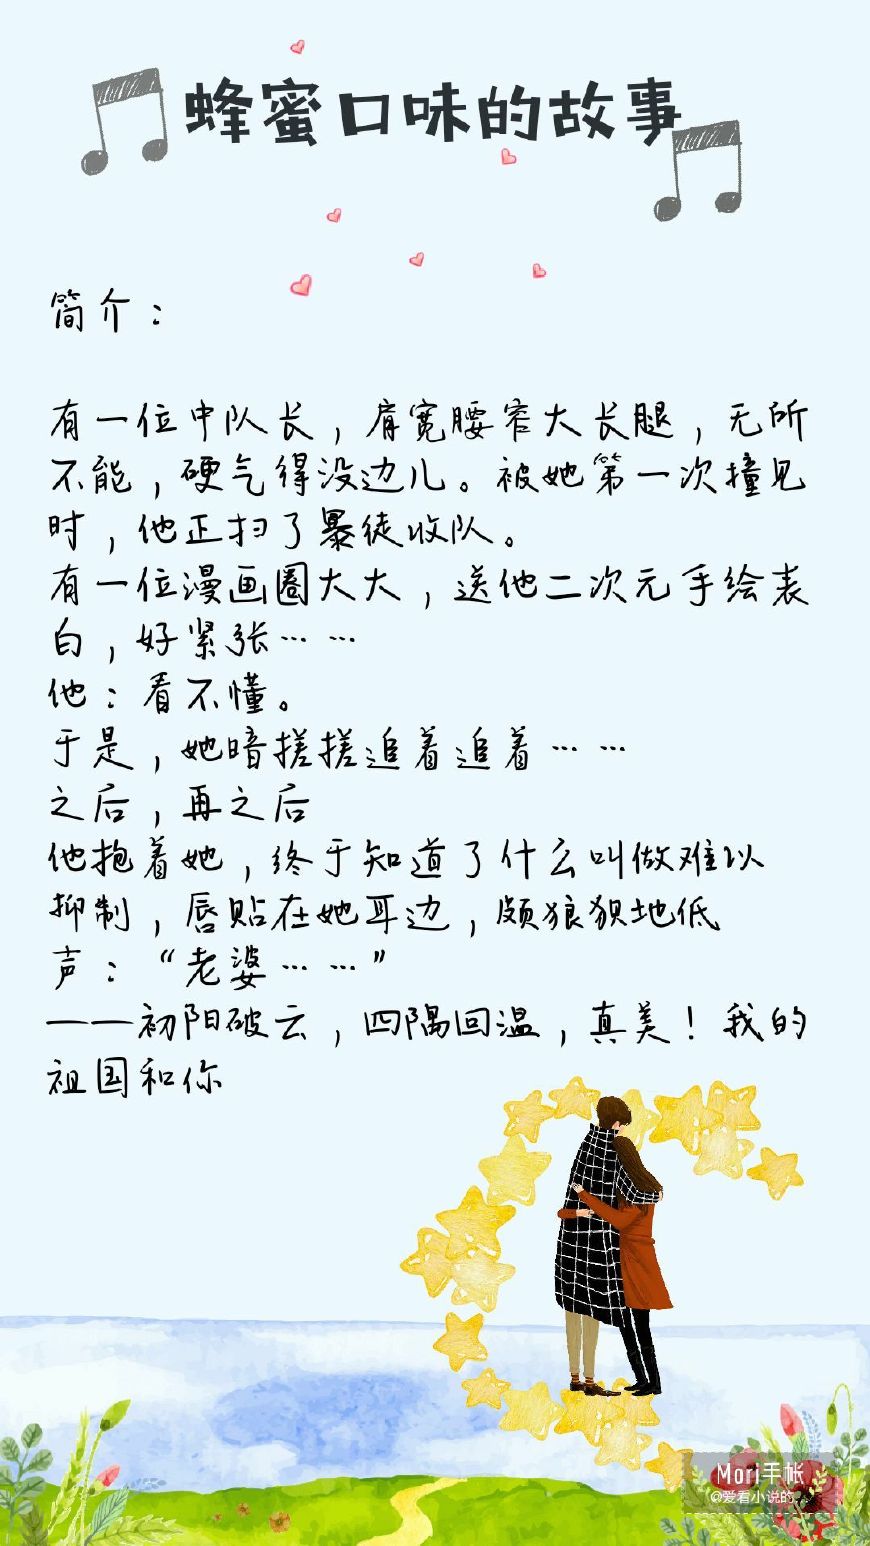 蜂蜜口味的故事
简介：
有一位中队长，肩宽腰窄大长腿，无所
不能，硬气得没边儿。被她第一次撞见
时，他正扫了暴徒收队。
有一位漫画圈大大，送他二次元手绘表
白，好紧张……
他：看不懂。
于是，她暗搓搓追着追着……
之后，再之后
他抱着她，终于知道了什么叫做难以
抑制，唇贴在她耳边，颇狼狈地低
声：“老婆……”
——初阳破云，四隅回温，真美！我的
祖国和你
Mori手帐
@爱看小说的